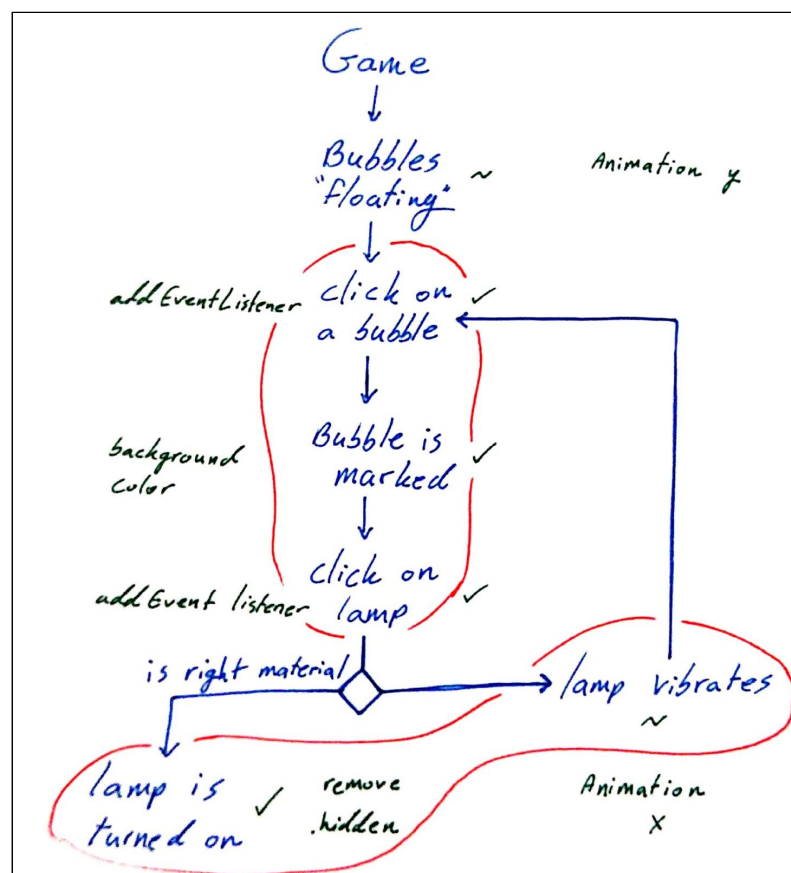 Game
Bubbles
"floating" ~
Animation y
addEventListener
click on ✓
a bubble
background
color
Bubble is
marked ✓
addEvent listener
click on
lamp ✓
is right material
lamp vibrates
~
lamp is
turned on ✓
remove
.hidden
Animation
X